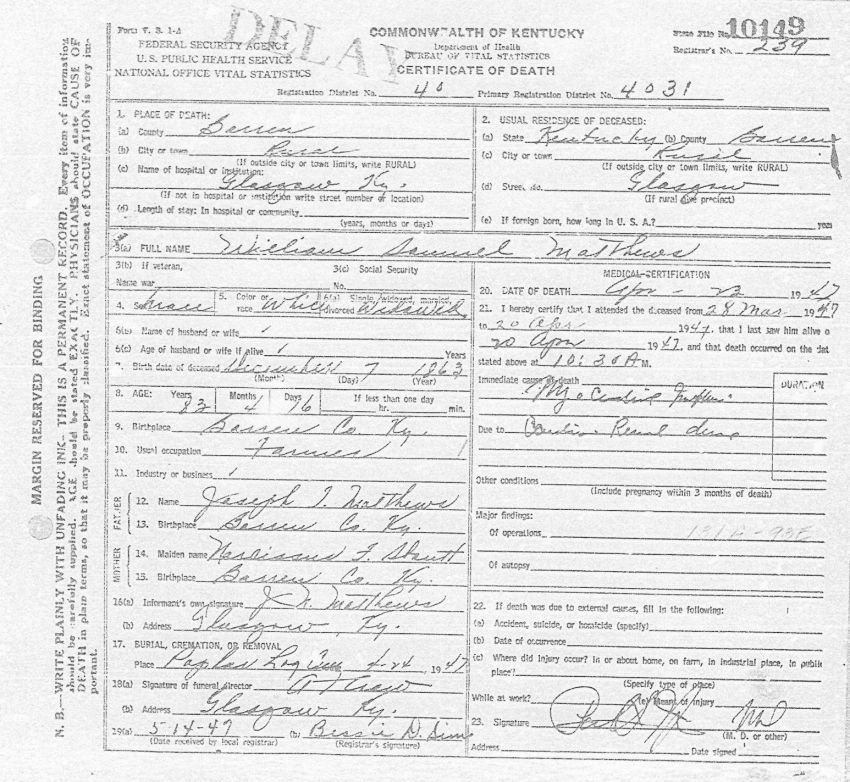 MARGIN RESERVED FOR BINDING
N. B.—WRITE PLAINLY WITH UNFADING INK—THIS IS A PERMANENT RECORD. Every item of information
should be carefully supplied. AGE should be stated EXACTLY. PHYSICIANS should state CAUSE OF
DEATH in plain terms, so that it may be properly classified. Exact statement of OCCUPATION is very im-
portant.
DELAY
Form V. S. 1-A
FEDERAL SECURITY AGENCY
U. S. PUBLIC HEALTH SERVICE
NATIONAL OFFICE VITAL STATISTICS
COMMONWEALTH OF KENTUCKY
Department of Health
BUREAU OF VITAL STATISTICS
CERTIFICATE OF DEATH
State File No. 10149
Registrar's No. 239
Registration District No. 40 Primary Registration District No. 4031
1. PLACE OF DEATH:
(a) County Barren
(b) City or town Rural
(If outside city or town limits, write RURAL)
(c) Name of hospital or institution:
Glasgow, Ky.
(If not in hospital or institution write street number or location)
(d) Length of stay: In hospital or community
(years, months or days)
2. USUAL RESIDENCE OF DECEASED:
(a) State Kentucky (b) County Barren
(c) City or town Rural
(If outside city or town limits, write RURAL)
(d) Street No. Glasgow
(If rural give precinct)
(e) If foreign born, how long in U. S. A.? years
3(a) FULL NAME William Samuel Matthews
3(b) If veteran,
Name war
3(c) Social Security
No.
4. Sex male 5. Color or race White 6(a) Single, widowed, married, divorced Widowed
6(b) Name of husband or wife
6(c) Age of husband or wife if alive Years
7. Birth date of deceased December 7 1863
(Month) (Day) (Year)
8. AGE: Years 83 Months 4 Days 16 If less than one day
hr. min.
9. Birthplace Barren Co. Ky.
10. Usual occupation Farmer
11. Industry or business
FATHER
12. Name Joseph T. Matthews
13. Birthplace Barren Co. Ky.
MOTHER
14. Maiden name Narcissus F.
15. Birthplace Barren Co. Ky.
16(a) Informant's own signature Matthews
(b) Address Glasgow Ky.
17. BURIAL, CREMATION, OR REMOVAL
Place Poplar Log Cem 4-24 1947
18(a) Signature of funeral director
(b) Address Glasgow Ky.
19(a) 5-14-47 (b) Bessie D. Sims
(Date received by local registrar) (Registrar's signature)
MEDICAL CERTIFICATION
20. DATE OF DEATH Apr - 23 1947
21. I hereby certify that I attended the deceased from 28 Mar 1947
to 20 Apr 1947, that I last saw him alive o
20 Apr 1947, and that death occurred on the dat
stated above at 10:30 A M.
Immediate cause of death
DURATION
Due to Cardio-Renal
Other conditions
(Include pregnancy within 3 months of death)
Major findings:
Of operations
Of autopsy
22. If death was due to external causes, fill in the following:
(a) Accident, suicide, or homicide (specify)
(b) Date of occurrence
(c) Where did injury occur? In or about home, on farm, in industrial place, in public
place?
(Specify type of place)
While at work? (e) Means of injury
23. Signature MD
(M. D. or other)
Address Date signed